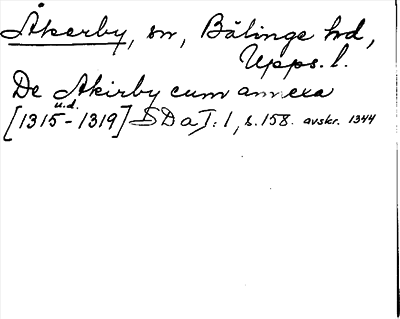 Åkerby, sn, Bälinge hd,
Upps. l.
De Akirby cum annexa
u.d.
[1315-1319] SD a I:1, s. 158. avskr. 1344